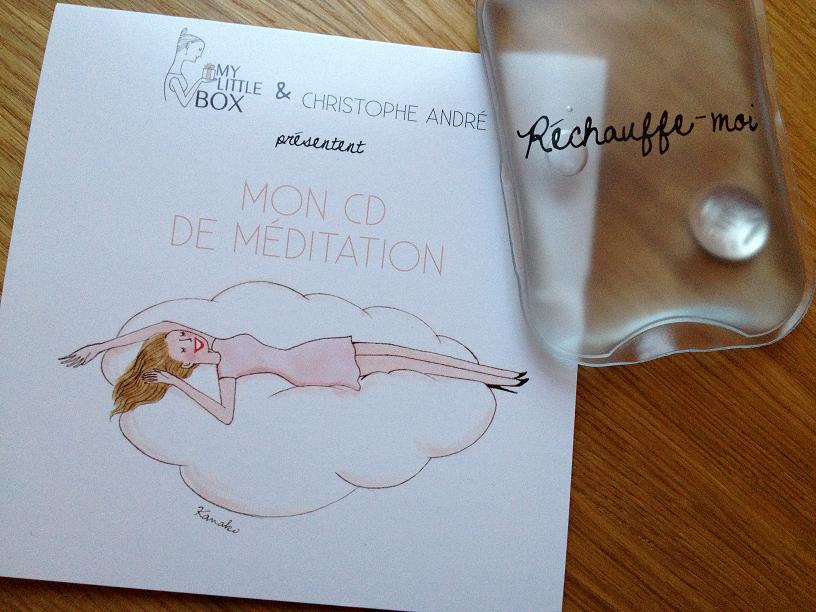 MY
LITTLE
BOX
& CHRISTOPHE ANDRÉ
présentent
MON CD
DE MÉDITATION
Kanako
Réchauffe-moi